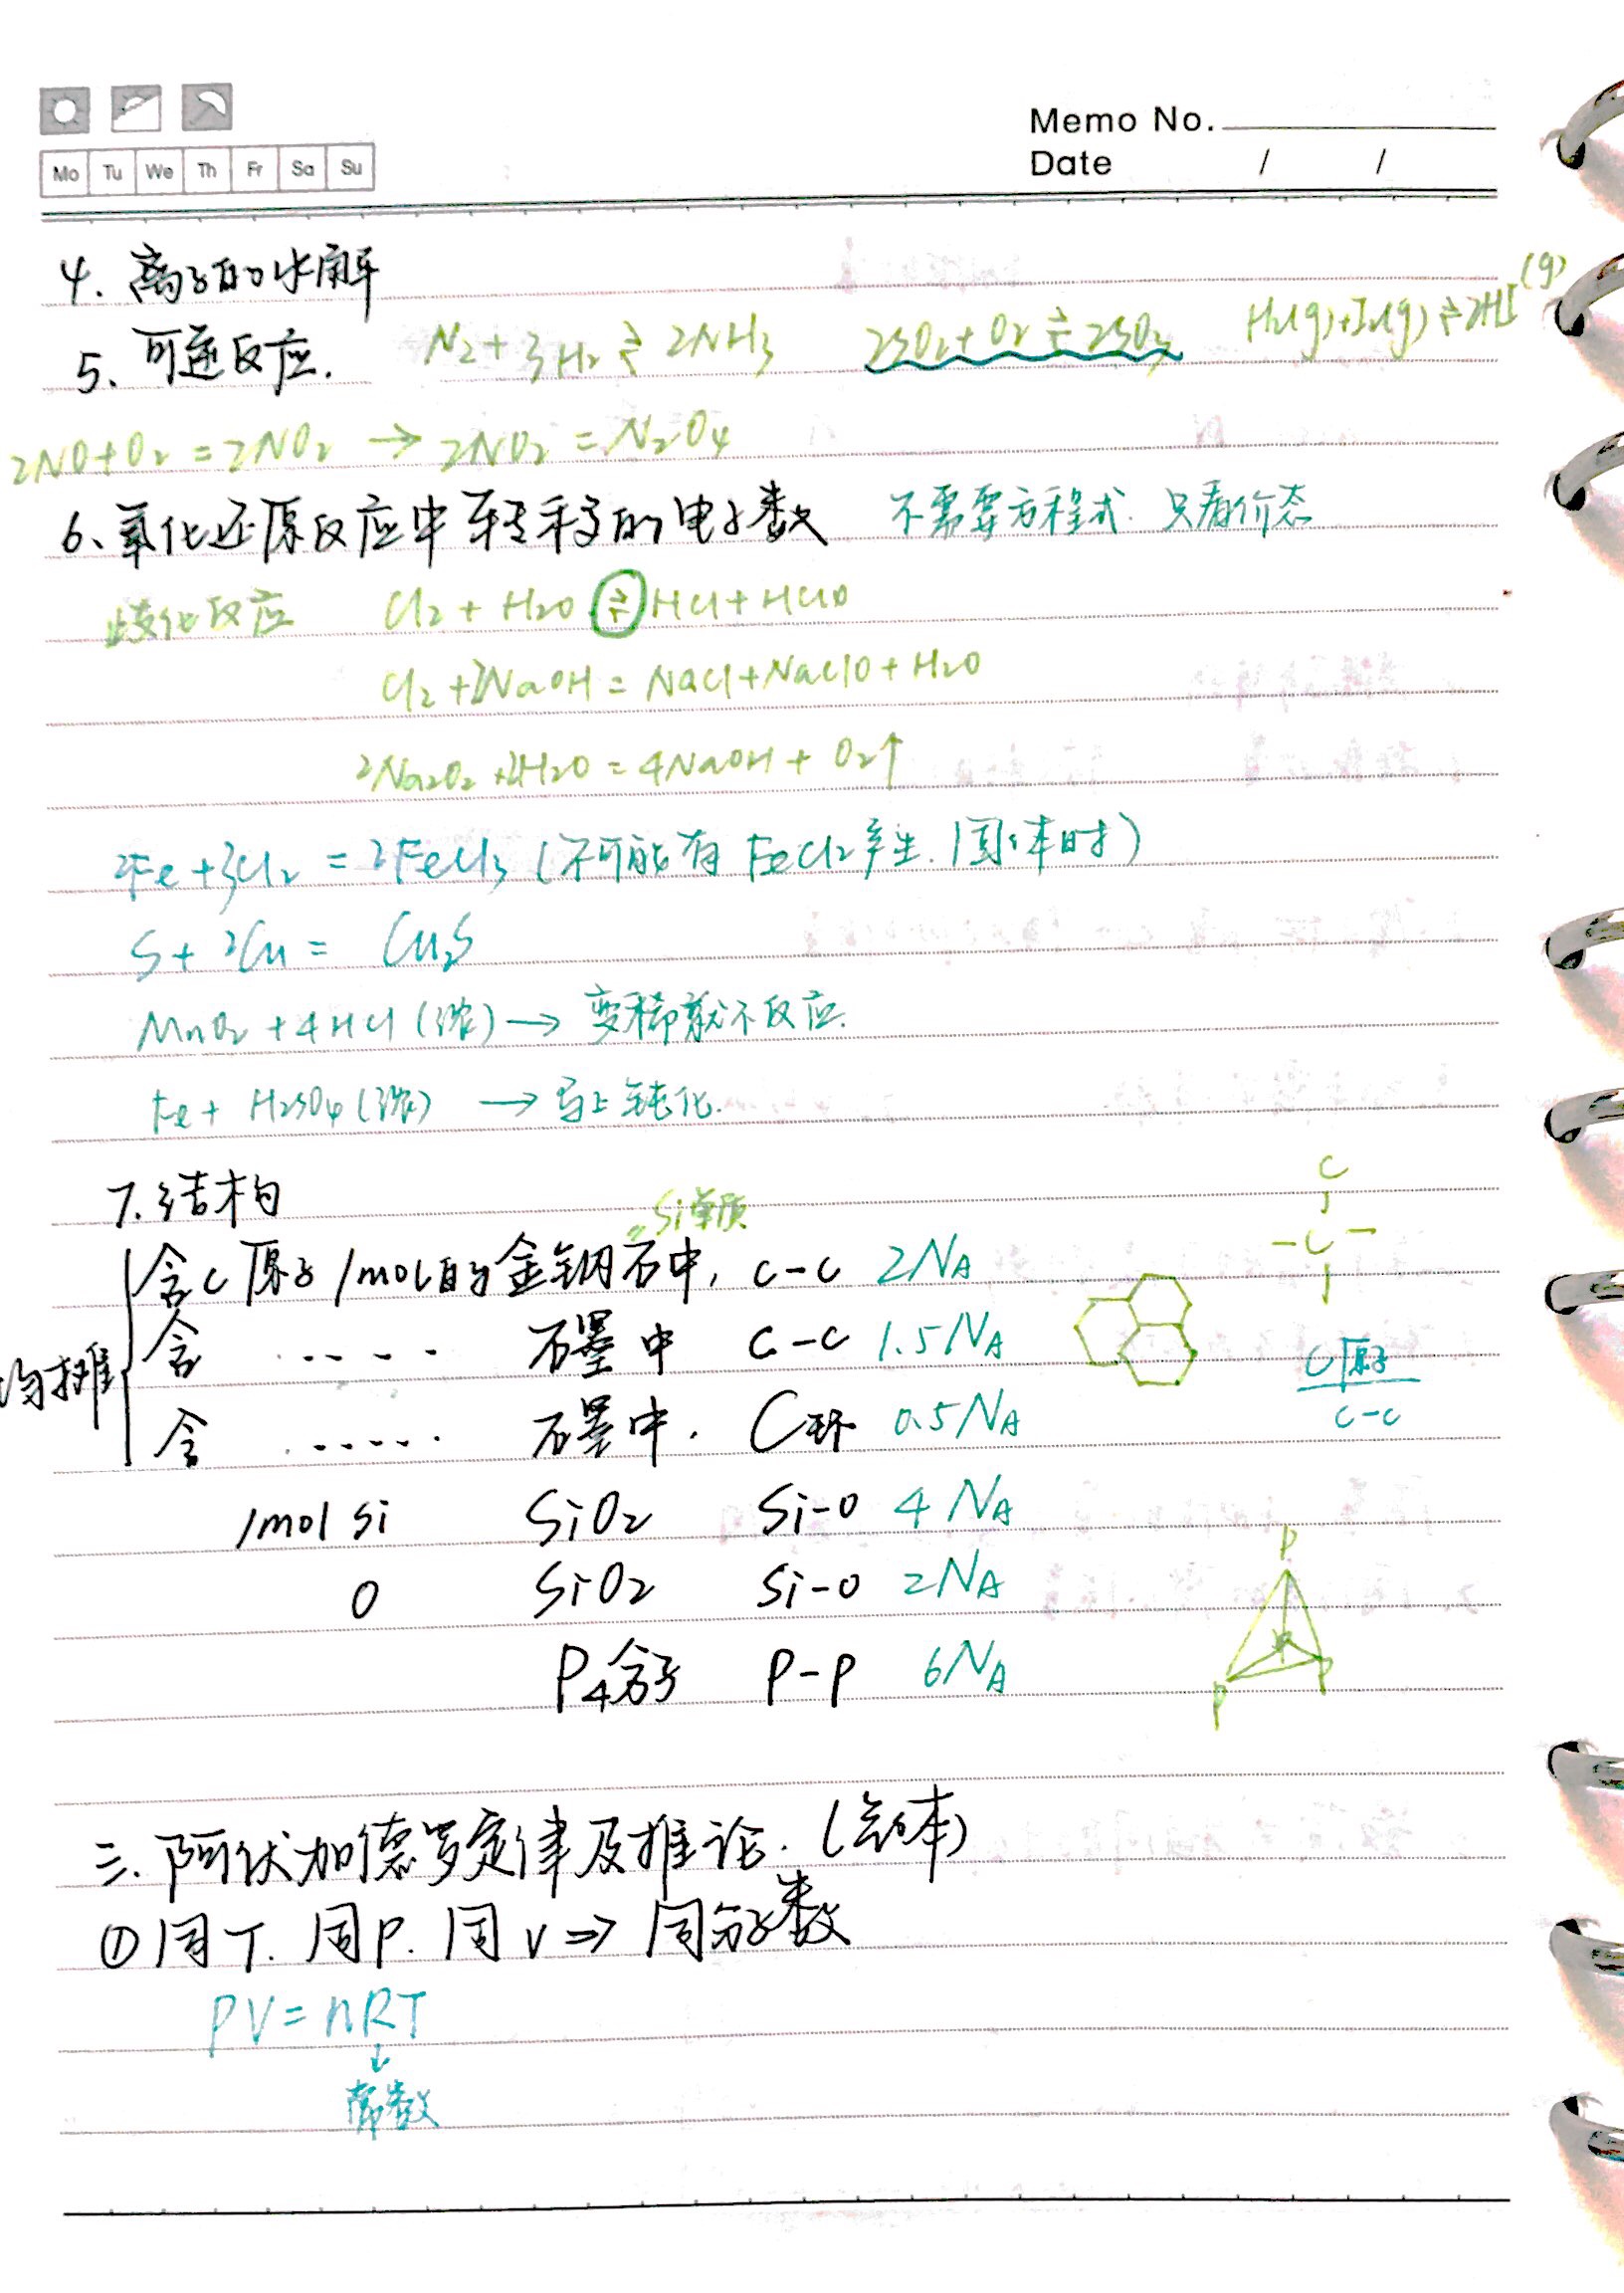 Memo No.
Mo Tu We Th Fr Sa Su
Date / /
4. 离子的水解
5、可逆反应. N₂+3H₂⇌2NH₃ 2SO₂+O₂⇌2SO₃ H₂(g)+I₂(g)⇌2HI(g)
2NO+O₂=2NO₂ → 2NO₂=N₂O₄
6、氧化还原反应中转移的电子数 不需要方程式. 只看价态
歧化反应 Cl₂+H₂O⇌HCl+HClO
Cl₂+2NaOH=NaCl+NaClO+H₂O
2Na₂O₂+2H₂O=4NaOH+O₂↑
2Fe+3Cl₂=2FeCl₃(不可能有FeCl₂产生.固体时)
S+2Cu= Cu₂S
MnO₂+4HCl(浓)→变稀就不反应.
Fe+H₂SO₄(浓) →马上钝化.
7.结构
Si单质
含C原子1mol的金钢石中, C-C 2Nᴀ
含 ..... 石墨中 C-C 1.5Nᴀ
均摊
含 ...... 石墨中. C环 0.5Nᴀ
C
-C-
C原子
C-C
1mol Si SiO₂ Si-O 4Nᴀ
O SiO₂ Si-O 2Nᴀ
P₄分子 P-P 6Nᴀ
P
P
P
P
三.阿伏加德罗定律及推论.(气体)
①同T.同P.同V⇒同分子数
PV=nRT
↓
常数